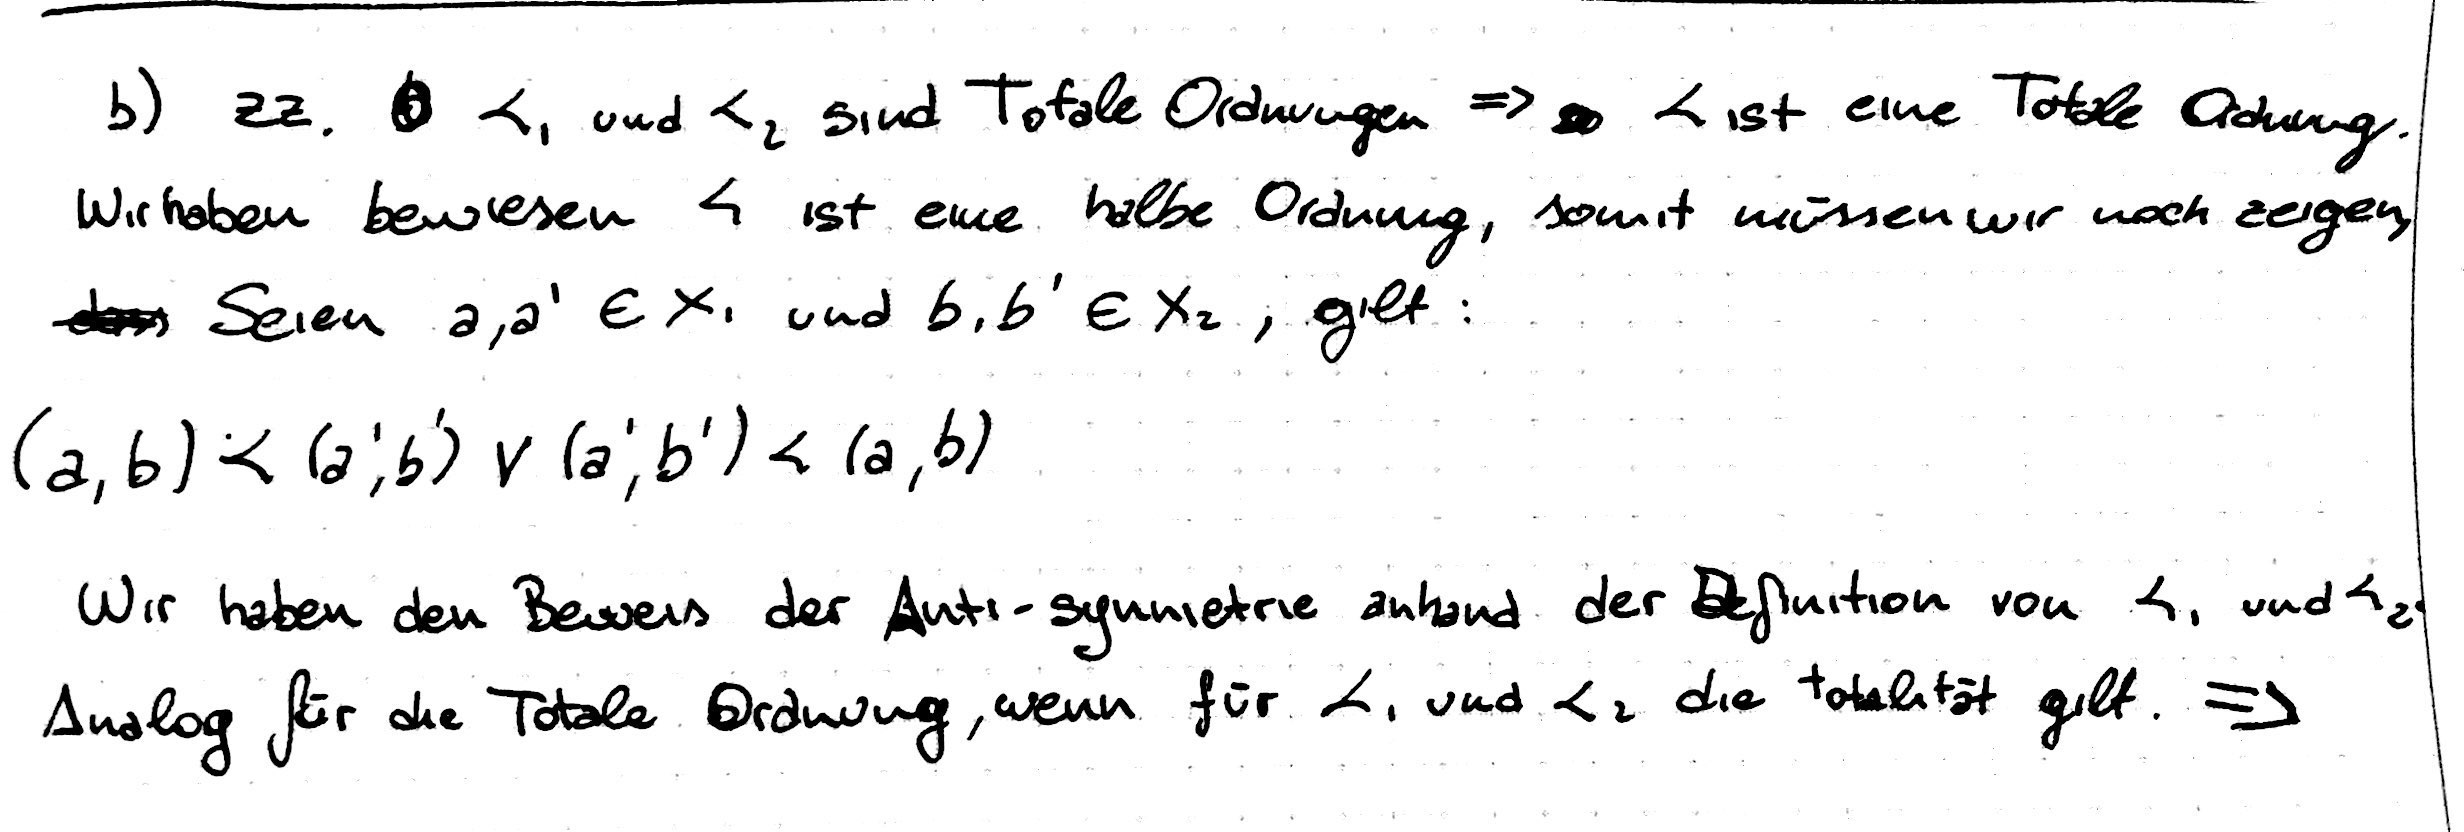 b) zz. ≺₁ und ≺₂ sind Totale Ordnungen => ≺ ist eine Totale Ordnung.
Wir haben bewiesen ≺ ist eine halbe Ordnung, somit müssen wir noch zeigen,
Seien a,a' ∈ X₁ und b,b' ∈ X₂, gilt:
(a,b) ≺ (a',b') ∨ (a',b') ≺ (a,b)
Wir haben den Beweis der Anti-symmetrie anhand der Definition von ≺₁ und ≺₂.
Analog für die Totale Ordnung, wenn für ≺₁ und ≺₂ die totalität gilt. =>